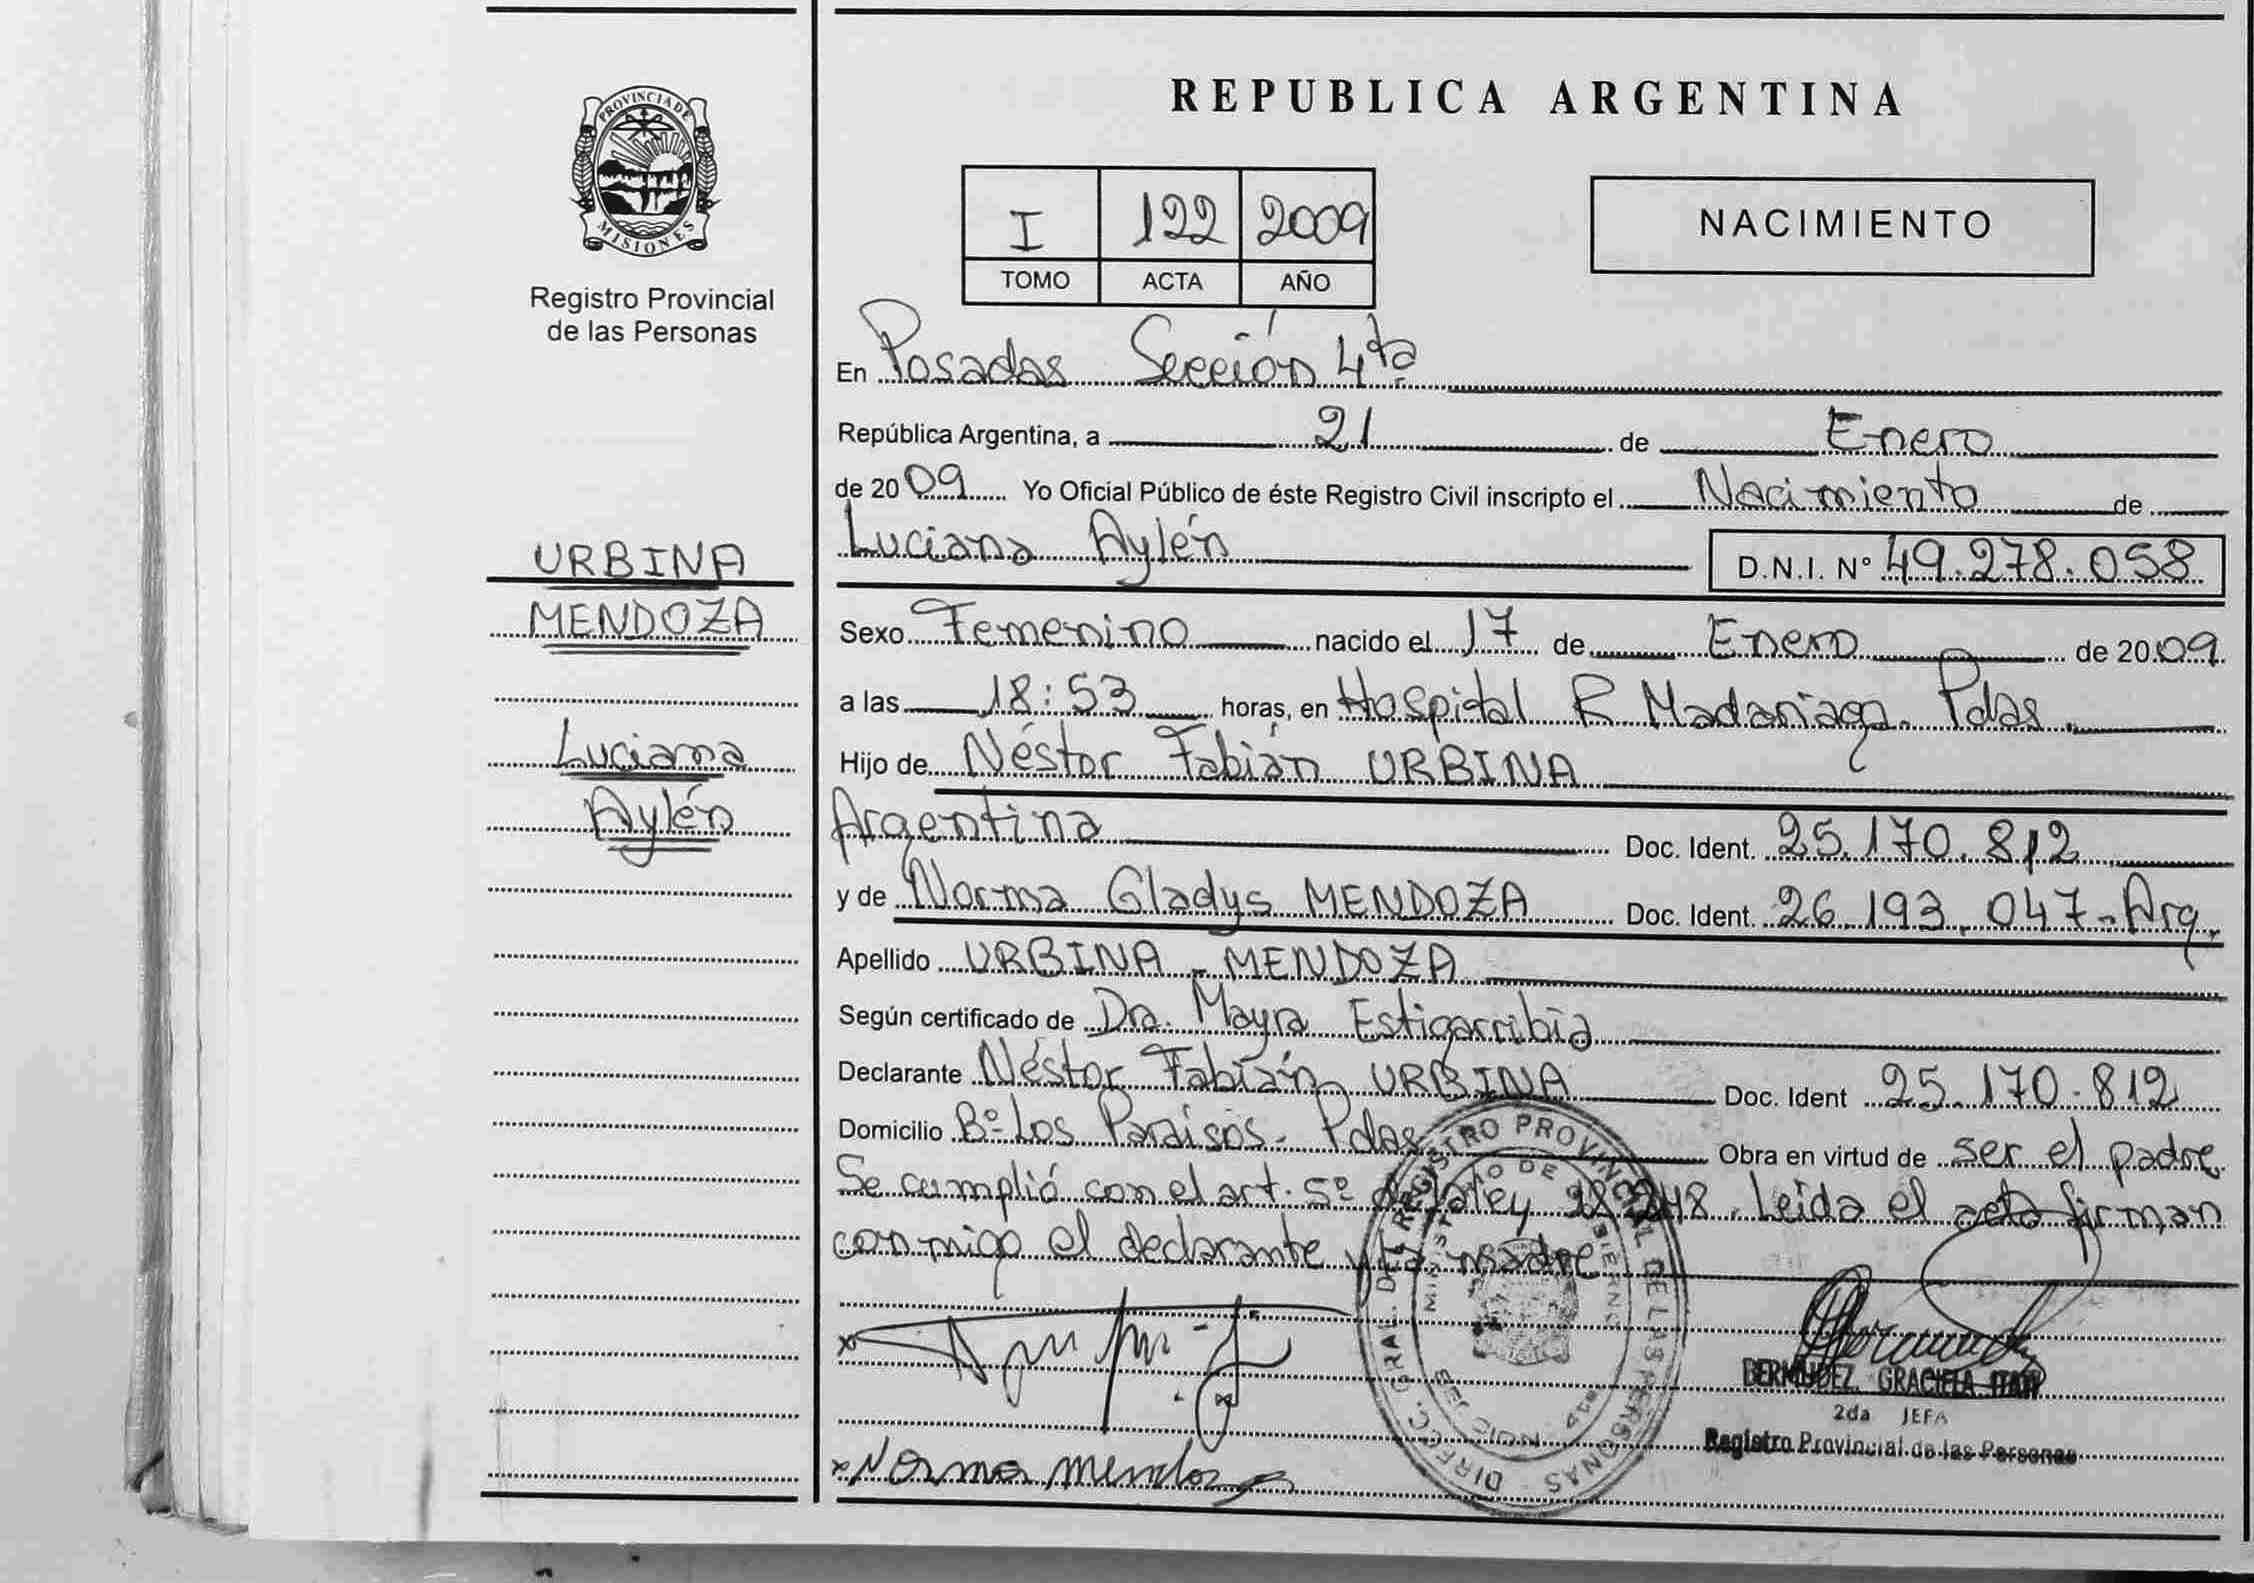 PROVINCIA DE
MISIONES
Registro Provincial
de las Personas
URBINA
MENDOZA
Luciana
Aylén
REPUBLICA ARGENTINA
I 122 2009
TOMO ACTA AÑO
NACIMIENTO
En Posadas Sección 4ta
República Argentina, a 21 de Enero
de 2009 Yo Oficial Público de éste Registro Civil inscripto el Nacimiento de
Luciana Aylén D.N.I. N° 49.278.058
Sexo Femenino nacido el 17 de Enero de 2009
a las 18:53 horas, en Hospital R Madariaga. Pdas.
Hijo de Néstor Fabián URBINA
Argentina Doc. Ident. 25.170.812
y de Norma Gladys MENDOZA Doc. Ident. 26.193.047-Arg.
Apellido URBINA - MENDOZA
Según certificado de Dra. Mayra Estigarribia
Declarante Néstor Fabián URBINA Doc. Ident 25.170.812
Domicilio Bº Los Paraisos - Pdas Obra en virtud de ser el padre
Se cumplió con el art. 5º de la ley 18.248. Leida el acta firman
conmigo el declarante y la madre
Norma mendoza
DIRECC. GRAL. DEL REGISTRO PROVINCIAL DE LAS PERSONAS
MINISTERIO DE GOBIERNO
BERMUDEZ. GRACIELA ITATI
2da JEFA
Registro Provincial de las Personas